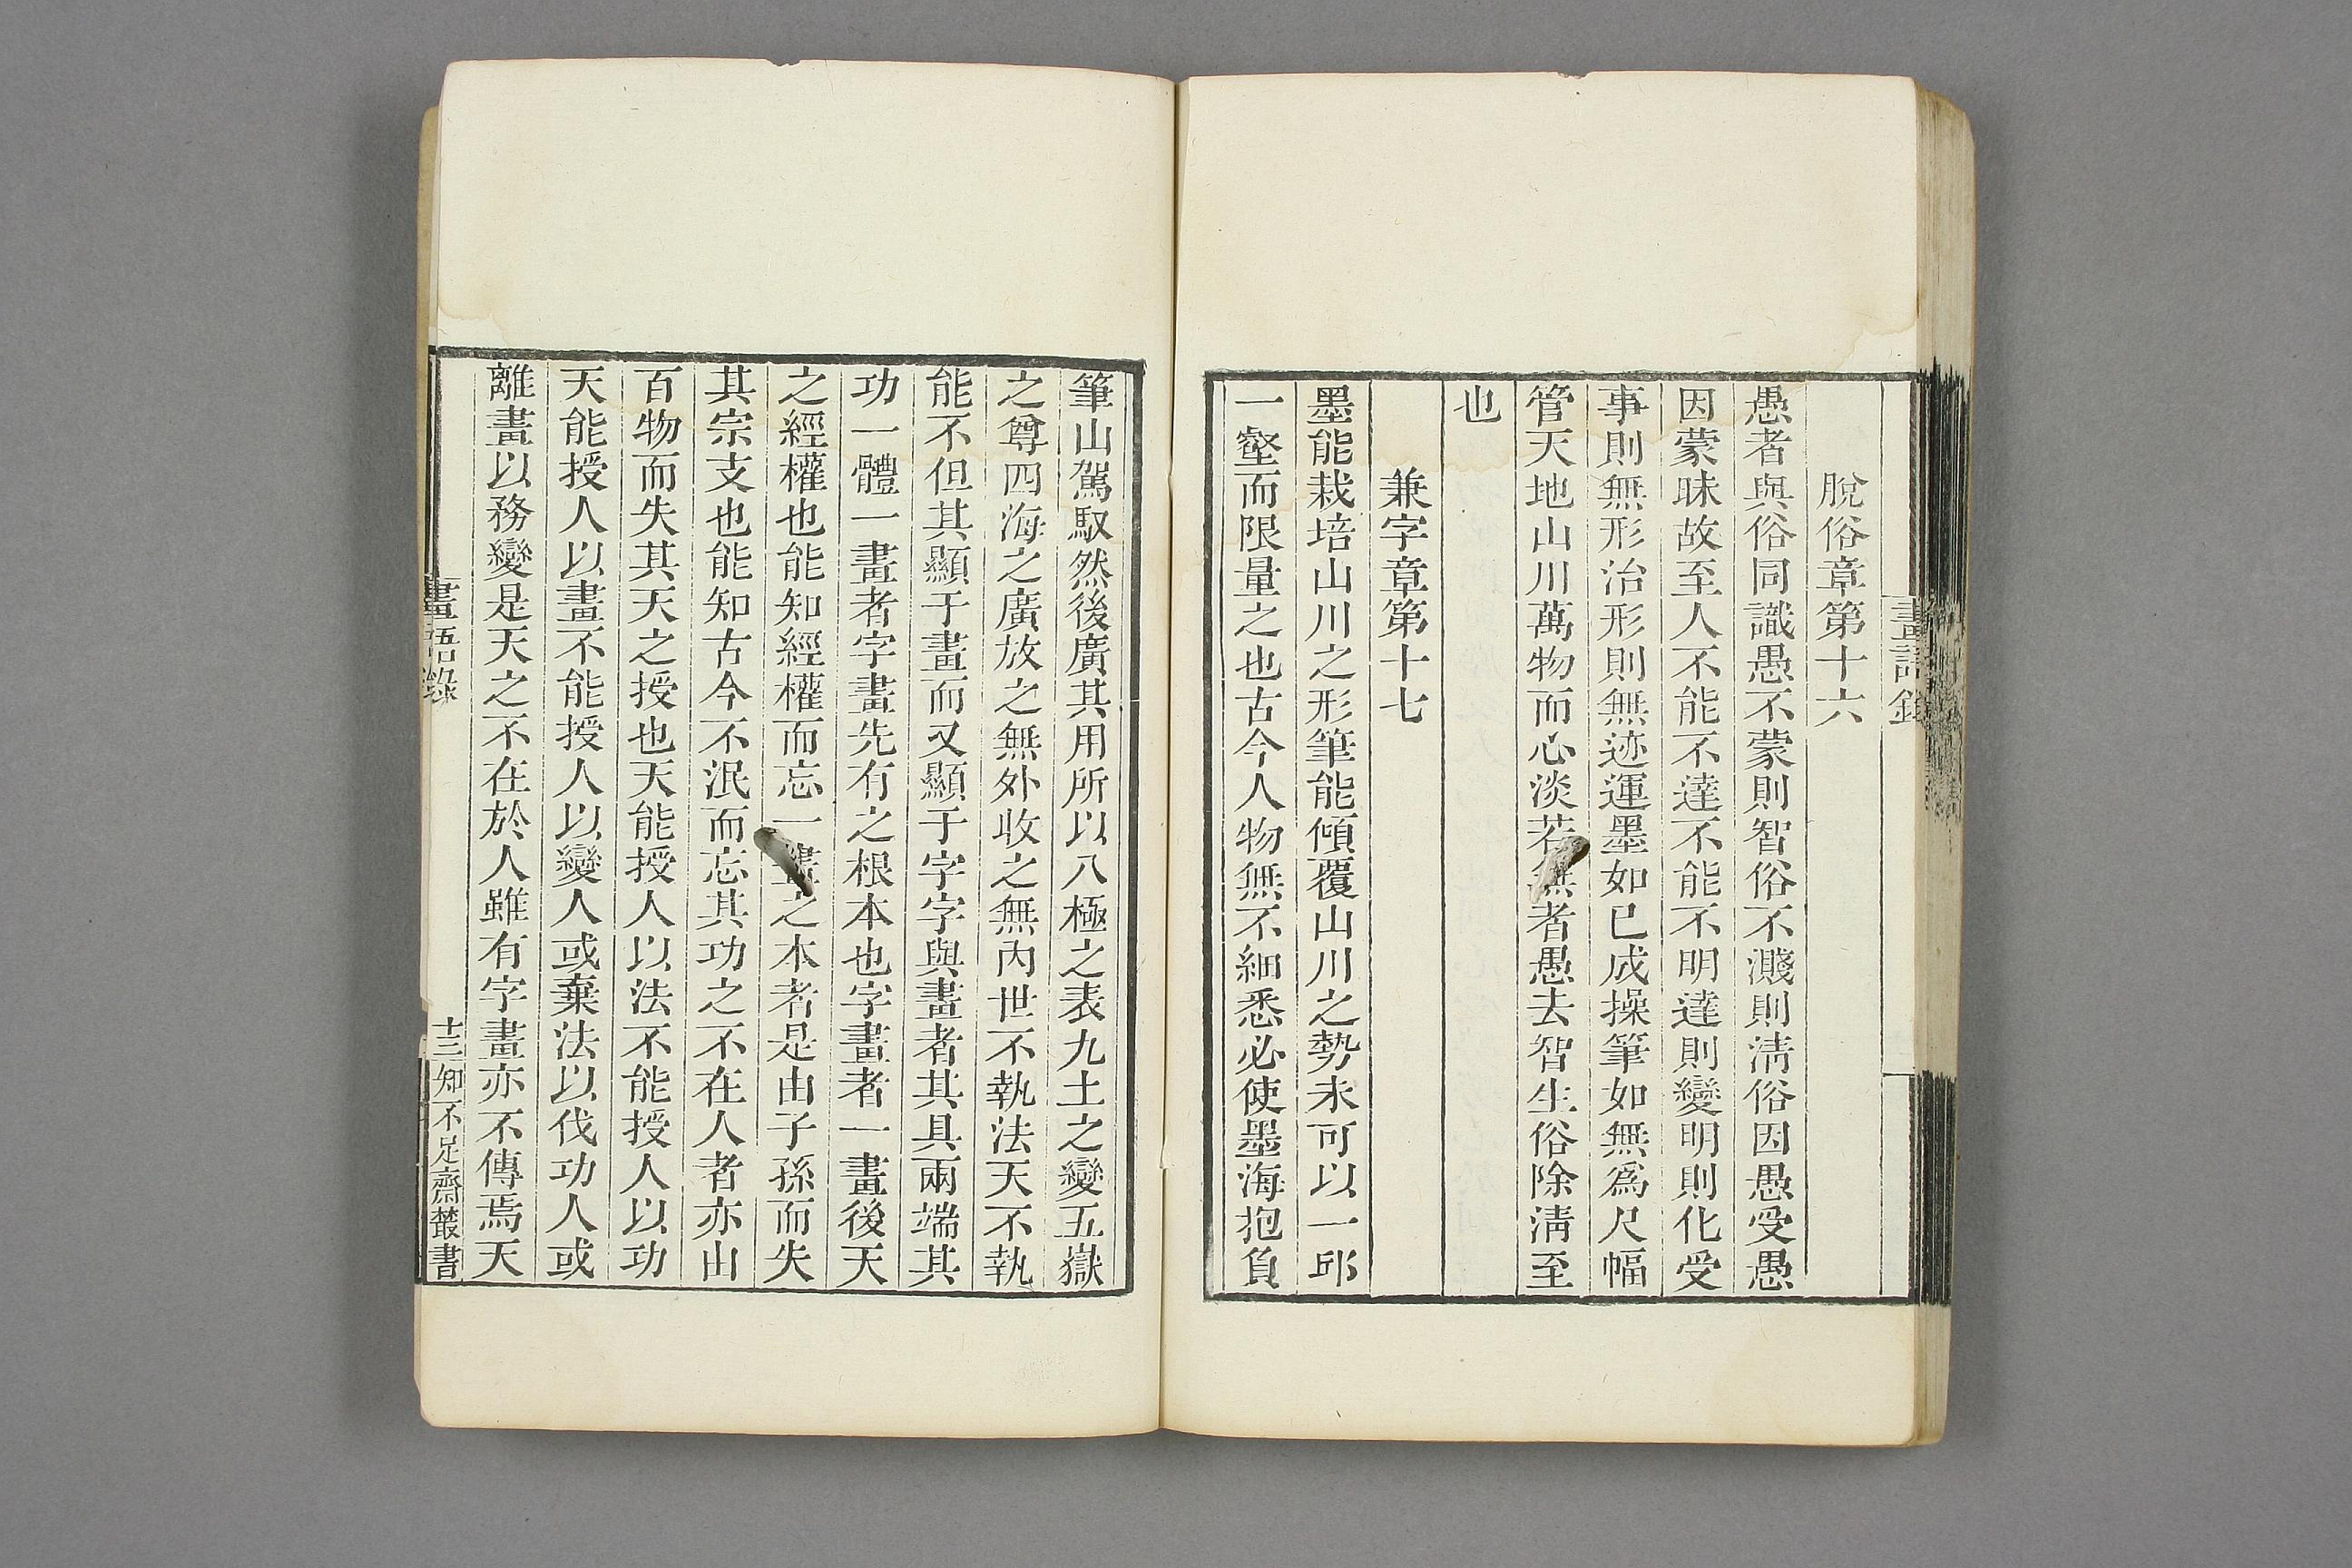 畫語錄
脫俗章第十六
愚者與俗同識愚不蒙則智俗不濺則淸俗因愚受愚
因蒙昧故至人不能不達不能不明達則變明則化受
事則無形治形則無迹運墨如已成操筆如無爲尺幅
管天地山川萬物而心淡若無者愚去智生俗除淸至
也
兼字章第十七
墨能栽培山川之形筆能傾覆山川之勢未可以一邱
一壑而限量之也古今人物無不細悉必使墨海抱負
筆山駕馭然後廣其用所以八極之表九土之變五嶽
之尊四海之廣放之無外收之無內世不執法天不執
能不但其顯于畫而又顯于字字與畫者其具兩端其
功一體一畫者字畫先有之根本也字畫者一畫後天
之經權也能知經權而忘一畫之本者是由子孫而失
其宗支也能知古今不泯而忘其功之不在人者亦由
百物而失其天之授也天能授人以法不能授人以功
天能授人以畫不能授人以變人或棄法以伐功人或
離畫以務變是天之不在於人雖有字畫亦不傳焉天
畫語錄
十三
知不足齋叢書